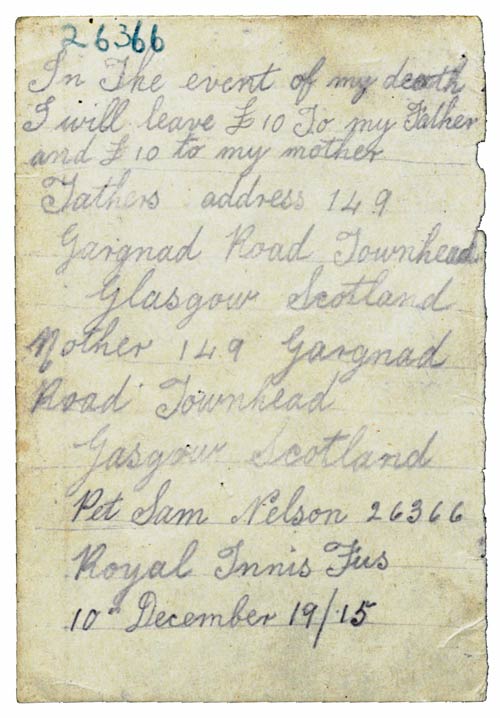 26366
In The event of my death
I will leave £10 To my Father
and £10 to my mother
Fathers address 149
Gargnad Road Townhead
Glasgow Scotland
Mother 149 Gargnad
Road Townhead
Gasgow Scotland
Pet Sam Nelson 26366
Royal Innis Fus
10th December 19/15